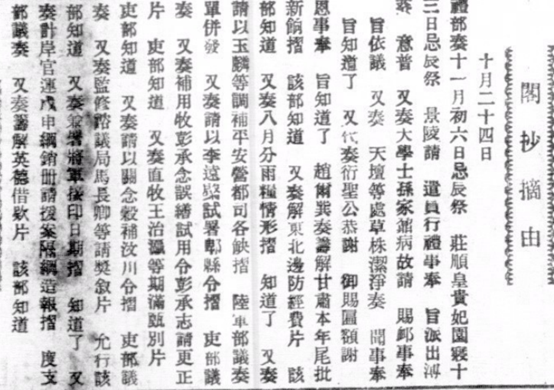 閣抄摘由
十月二十四日
禮部奏十一月初六日忌辰祭　莊順皇貴妃園寢十
三日忌辰祭　景陵請　遣員行禮事奉　旨派出溥
　意普　又奏大學士孫家鼐病故請　賜卹事奉
旨依議　又奏　天壇等處草株潔淨奏　聞事奉
旨知道了　又代奏衍聖公恭謝　御賜匾額謝
恩事奉　旨知道了　趙爾巽奏籌解甘肅本年尾批
新餉摺　該部知道　又奏解東北邊防經費片　該
部知道　又奏八月分雨糧情形摺　知道了　又奏
請以玉麟等調補平安營都司各缺摺　陸軍部議奏
單併發　又奏請以李遠棨試署縣令摺　吏部議
奏　又奏補用牧彭承念誤繕試用令彭承志請更正
片　吏部知道　又奏直牧王治灝等期滿甄別片
吏部知道　又奏請以關念穀補汶川令摺　吏部議
奏　又奏監修諮議局馬長卿等請獎敘片　允行該
部知道　又奏兼署將軍接印日期摺　知道了　又
奏計岸官運戊申綱銷冊請援案隨綱造報摺　度支
部議奏　又奏籌解英德借款片　該部知道